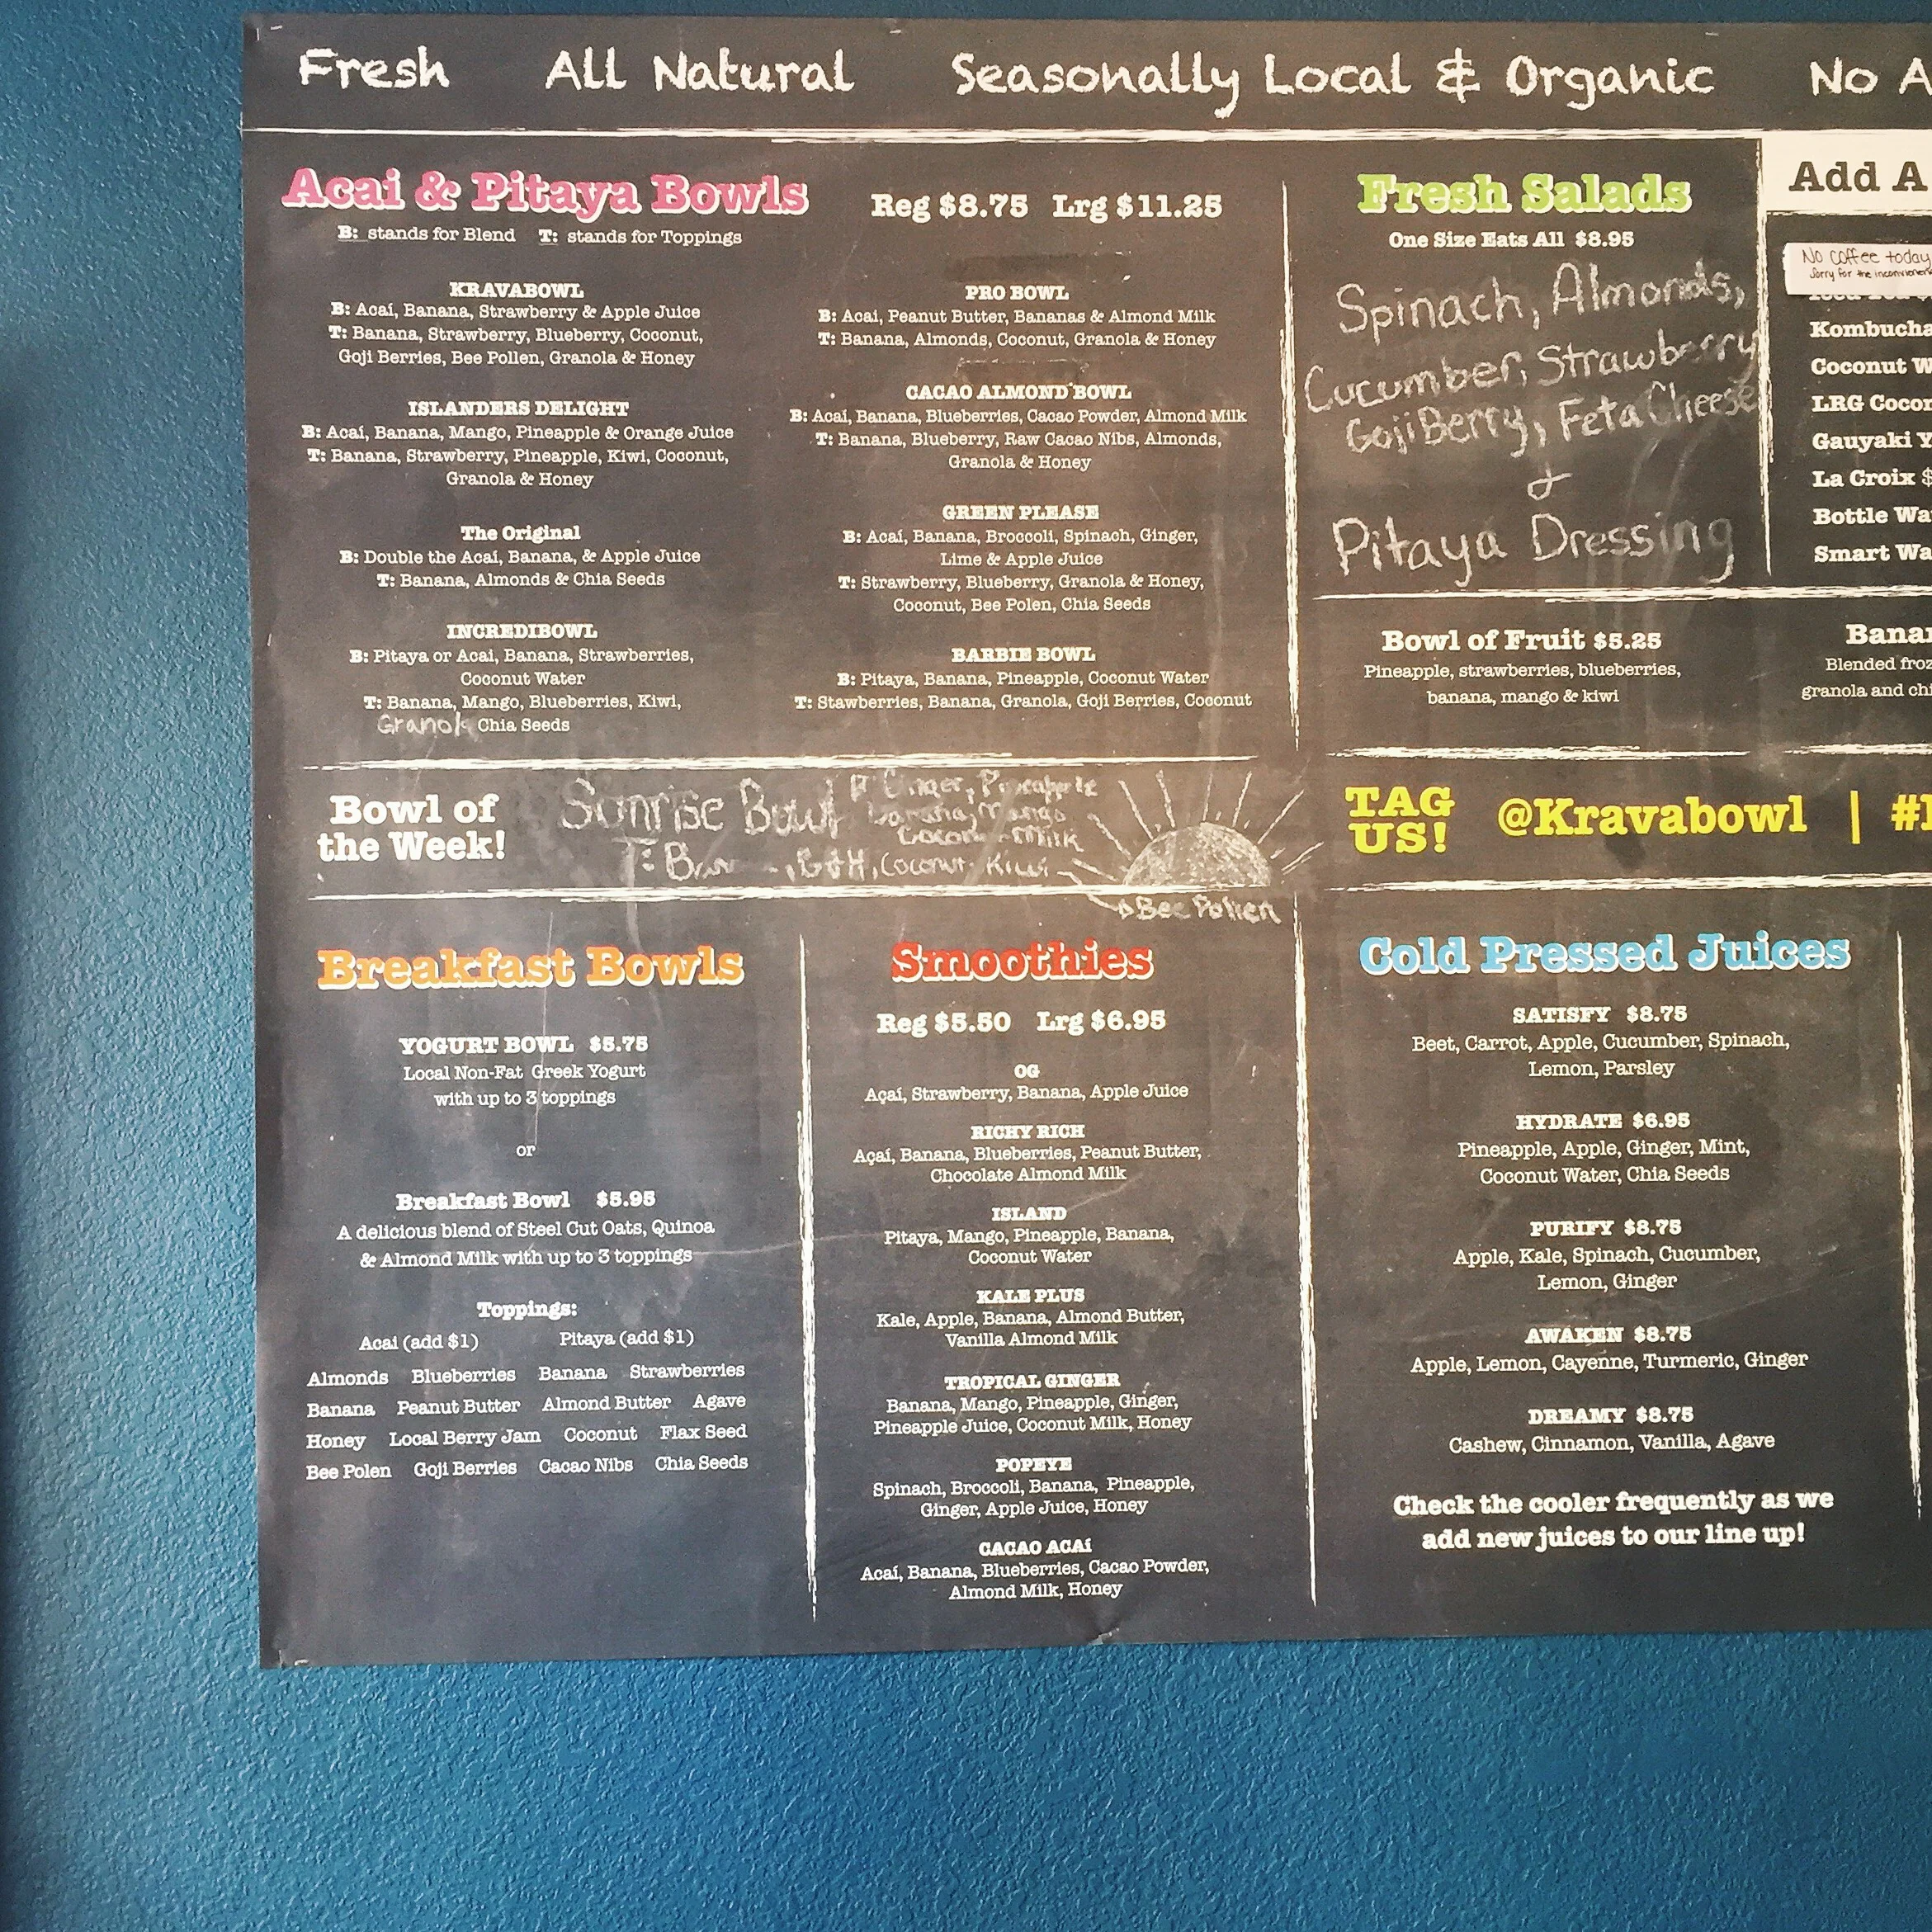 Fresh All Natural Seasonally Local & Organic No A
Acai & Pitaya Bowls Reg $8.75 Lrg $11.25
B: stands for Blend T: stands for Toppings
KRAVABOWL
B: Acaí, Banana, Strawberry & Apple Juice
T: Banana, Strawberry, Blueberry, Coconut,
Goji Berries, Bee Pollen, Granola & Honey
ISLANDERS DELIGHT
B: Acaí, Banana, Mango, Pineapple & Orange Juice
T: Banana, Strawberry, Pineapple, Kiwi, Coconut,
Granola & Honey
The Original
B: Double the Acaí, Banana, & Apple Juice
T: Banana, Almonds & Chia Seeds
INCREDIBOWL
B: Pitaya or Acai, Banana, Strawberries,
Coconut Water
T: Banana, Mango, Blueberries, Kiwi,
Granola Chia Seeds
PRO BOWL
B: Acai, Peanut Butter, Bananas & Almond Milk
T: Banana, Almonds, Coconut, Granola & Honey
CACAO ALMOND BOWL
B: Acaí, Banana, Blueberries, Cacao Powder, Almond Milk
T: Banana, Blueberry, Raw Cacao Nibs, Almonds,
Granola & Honey
GREEN PLEASE
B: Acaí, Banana, Broccoli, Spinach, Ginger,
Lime & Apple Juice
T: Strawberry, Blueberry, Granola & Honey,
Coconut, Bee Polen, Chia Seeds
BARBIE BOWL
B: Pitaya, Banana, Pineapple, Coconut Water
T: Stawberries, Banana, Granola, Goji Berries, Coconut
Fresh Salads
One Size Eats All $8.95
Spinach, Almonds,
Cucumber, Strawberry
Goji Berry, Feta Cheese
&
Pitaya Dressing
Add A
No coffee today
Sorry for the
Kombucha
Coconut W
LRG Cocon
Gauyaki Y
La Croix $
Bottle Wa
Smart Wa
Bowl of Fruit $5.25
Pineapple, strawberries, blueberries,
banana, mango & kiwi
Banan
Blended froz
granola and chi
Bowl of
the Week!
Sunrise Bowl
Ginger, Pineapple
banana, Mango
Milk
T: , G+H, Coconut, Kiwi
Bee Pollen
TAG
US!
@Kravabowl | #
Breakfast Bowls
YOGURT BOWL $5.75
Local Non-Fat Greek Yogurt
with up to 3 toppings
or
Breakfast Bowl $5.95
A delicious blend of Steel Cut Oats, Quinoa
& Almond Milk with up to 3 toppings
Toppings:
Acai (add $1) Pitaya (add $1)
Almonds Blueberries Banana Strawberries
Banana Peanut Butter Almond Butter Agave
Honey Local Berry Jam Coconut Flax Seed
Bee Polen Goji Berries Cacao Nibs Chia Seeds
Smoothies
Reg $5.50 Lrg $6.95
OG
Açaí, Strawberry, Banana, Apple Juice
RICHY RICH
Açaí, Banana, Blueberries, Peanut Butter,
Chocolate Almond Milk
ISLAND
Pitaya, Mango, Pineapple, Banana,
Coconut Water
KALE PLUS
Kale, Apple, Banana, Almond Butter,
Vanilla Almond Milk
TROPICAL GINGER
Banana, Mango, Pineapple, Ginger,
Pineapple Juice, Coconut Milk, Honey
POPEYE
Spinach, Broccoli, Banana, Pineapple,
Ginger, Apple Juice, Honey
CACAO ACAí
Acaí, Banana, Blueberries, Cacao Powder,
Almond Milk, Honey
Cold Pressed Juices
SATISFY $8.75
Beet, Carrot, Apple, Cucumber, Spinach,
Lemon, Parsley
HYDRATE $6.95
Pineapple, Apple, Ginger, Mint,
Coconut Water, Chia Seeds
PURIFY $8.75
Apple, Kale, Spinach, Cucumber,
Lemon, Ginger
AWAKEN $8.75
Apple, Lemon, Cayenne, Turmeric, Ginger
DREAMY $8.75
Cashew, Cinnamon, Vanilla, Agave
Check the cooler frequently as we
add new juices to our line up!